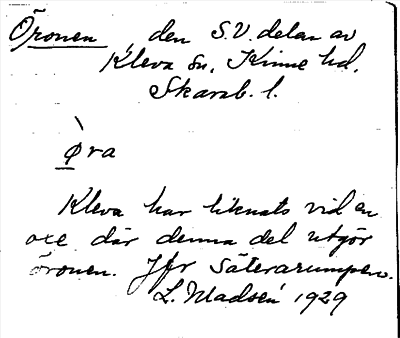 Öronen, den S.V. delen av
Kleva sn, Kinne hd.
Skarab. l.
Øra
Kleva har liknats vid en
oxe där denna del utgör
öronen. Jfr Säterarumpen.
L. Madsén 1929